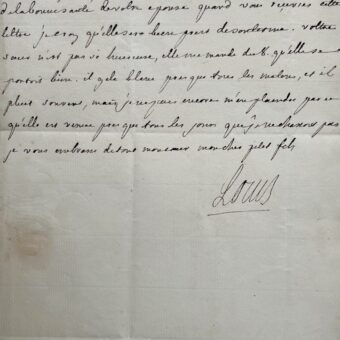 de la bonne santé de votre epouse quand vous receures cette
lettre je croy qu'elle sera bien prest d'acoucher. vottre
soeur n'est pas si heureuse, elle me mande du 8. qu'elle se
portoit bien. il gele blanc presque tous les matins, et il
pleut souvent, mais je ne puis encore m'en plaindre par ce
qu'elle est venue presque tous les jours que je ne chassois pas
je vous embrasse de tout mon coeur mon cher petit fils
Louis